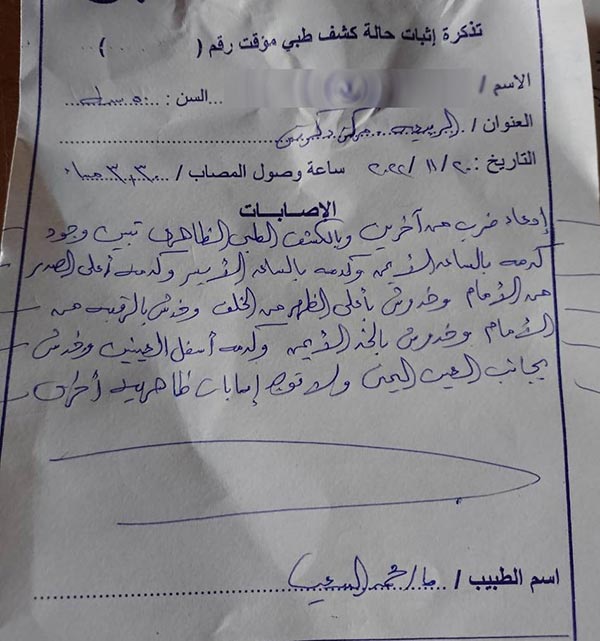 تذكرة إثبات حالة كشف طبي مؤقت رقم ( . . . . . )
الاسم /
السن :
العنوان /
التاريخ : ٢٠٢٢/١١/٢٠ ساعة وصول المصاب / ٣,٣٠ مساء
الإصابات
إدعاء ضرب من آخرين وبالكشف الطبى الظاهرى تبين وجود
كدمه بالساعد الأيمن وكدمه بالساعد الأيسر وكدمه أعلى الصدر
من الأمام وخدوش بأعلى الظهر من الخلف وخدش بالرقبه من
الأمام وخدوش بالخد الأيمن وكدمه أسفل العينين وخدش
بجانب العين اليمنى ولا توجد إصابات ظاهريه أخرى
اسم الطبيب /